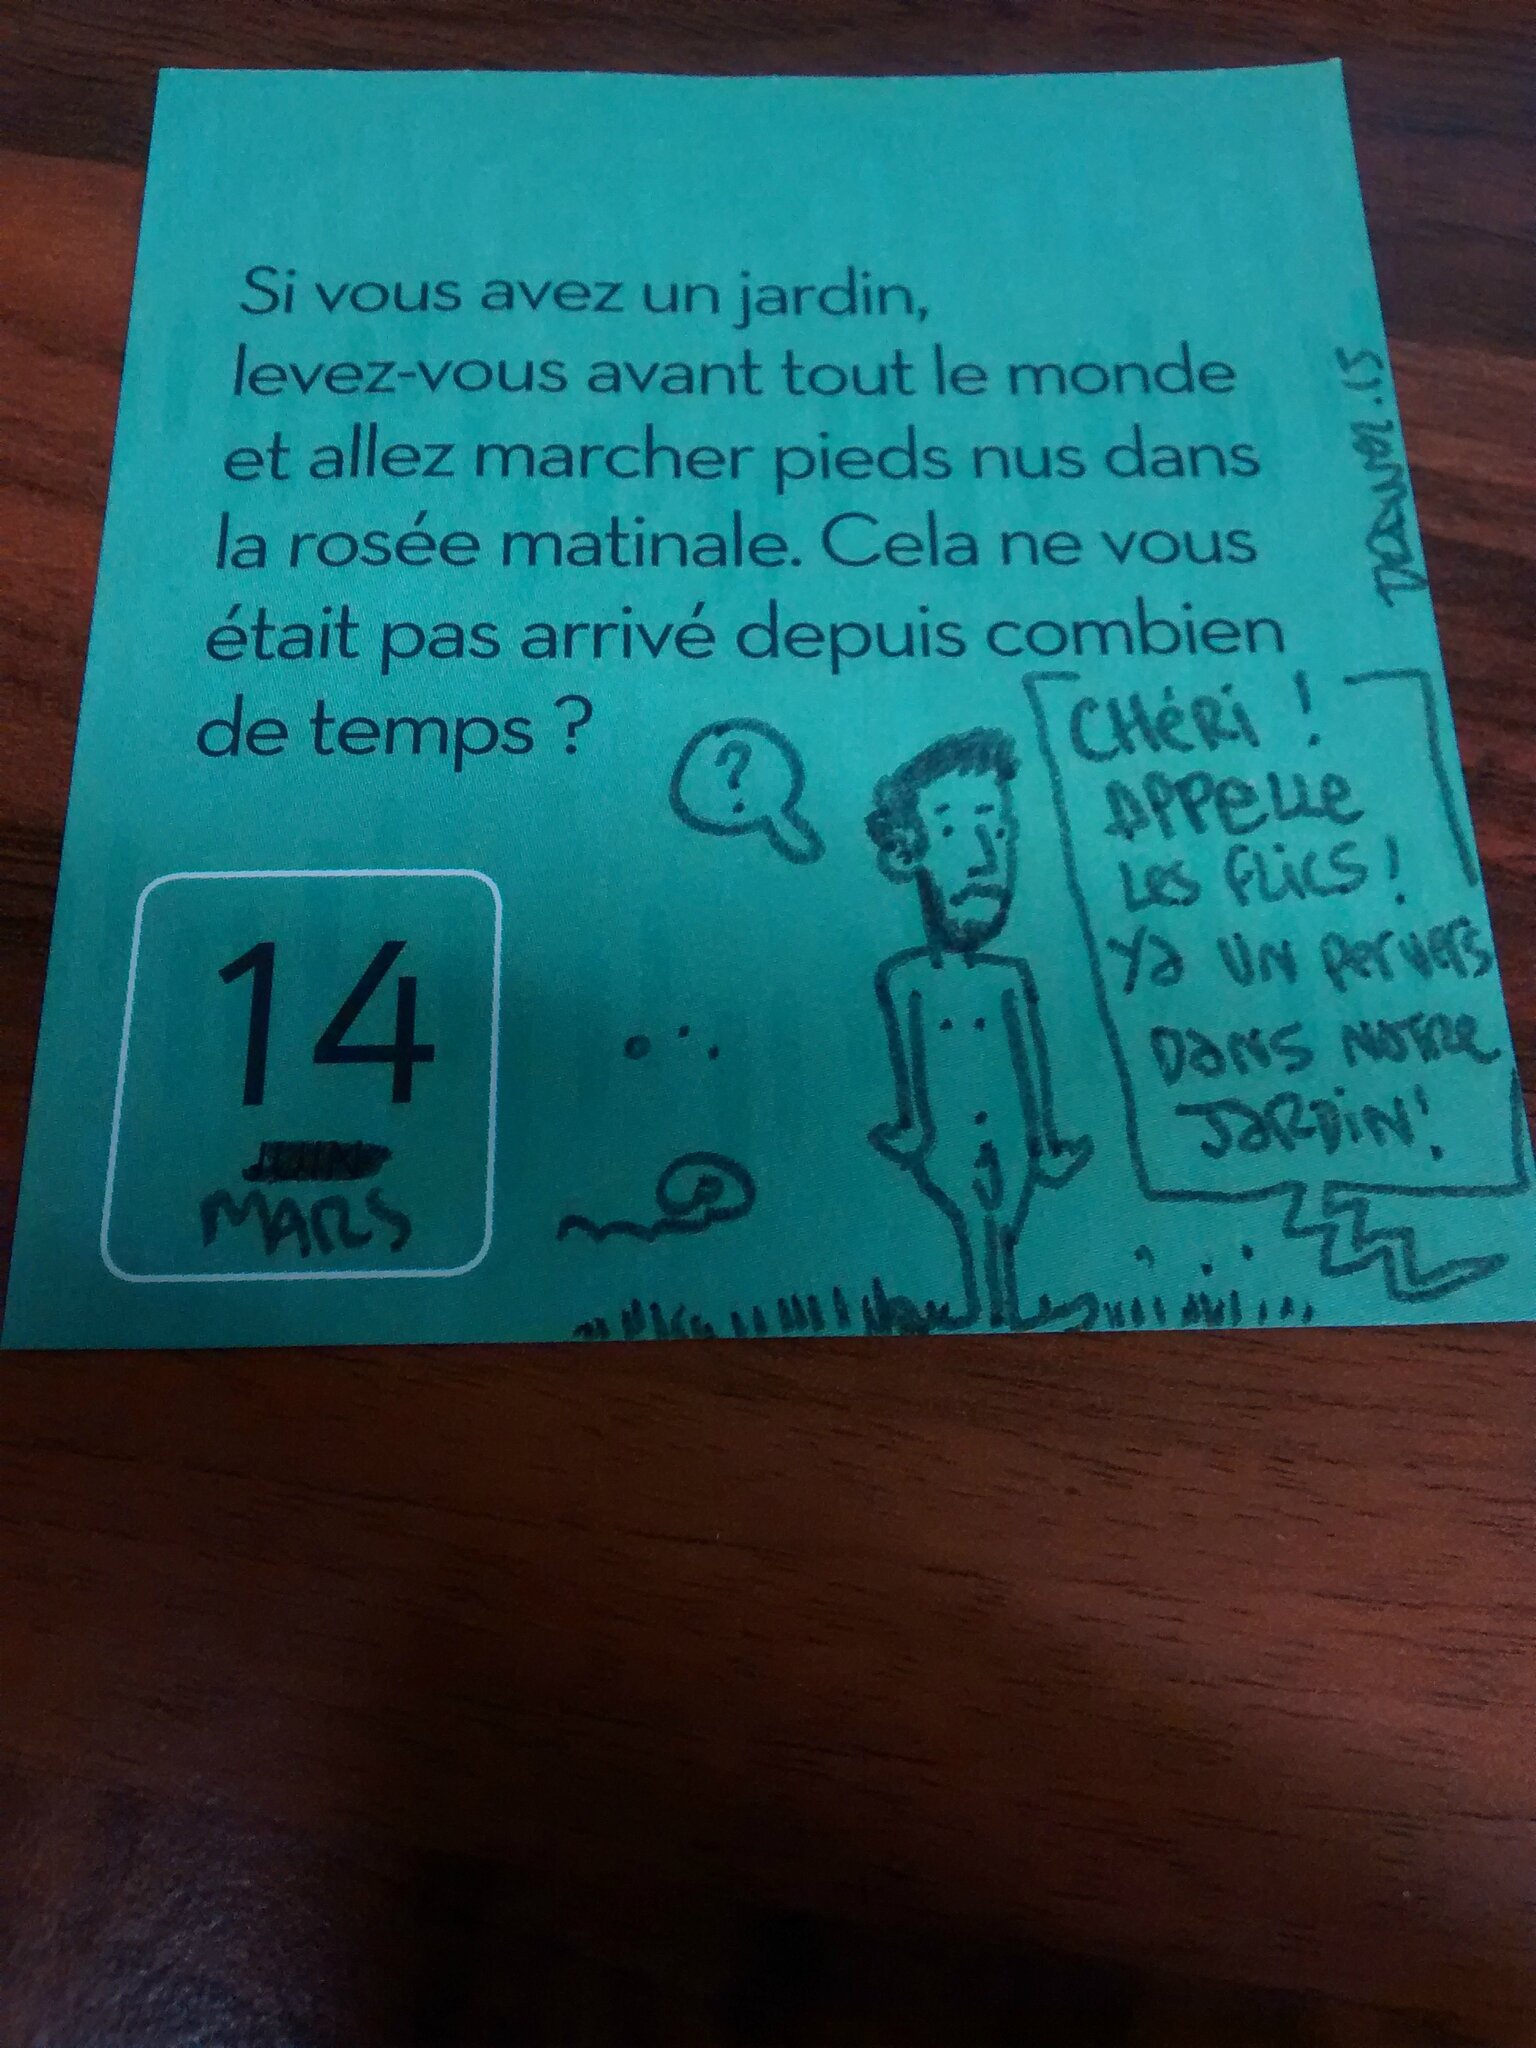 Si vous avez un jardin,
levez-vous avant tout le monde
et allez marcher pieds nus dans
la rosée matinale. Cela ne vous
était pas arrivé depuis combien
de temps ?
?
CHéRi !
APPeLLe
Les FLiCS !
Ya UN PerVers
DaNS NOTRe
JaRDiN !
14
MARS